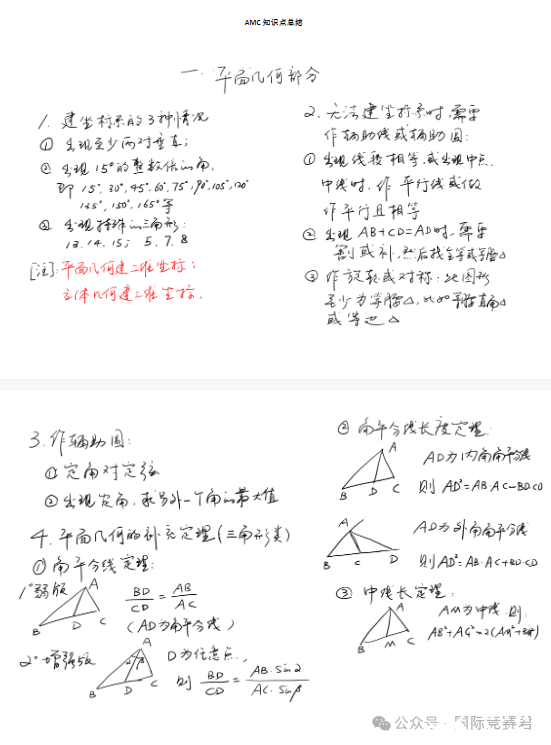 AMC 知识点总结
一. 平面几何部分
1. 建坐标系的3种情况
① 出现至少两对垂直;
② 出现15°的整数倍的角,
即 15°,30°,45°,60°,75°,90°,105°,120°
135°,150°,165°等
③ 出现特殊的三角形:
13.14.15; 5.7.8
[注]:平面几何建二维坐标;
立体几何建三维坐标.
2. 无法建坐标系时,需要
作辅助线或辅助圆:
① 出现线段相等,或出现中点.
中线时,作 平行线或做
作平行且相等
② 出现 AB+CD=AD时,需要
割或补,然后找全等或等腰△
③ 作旋转或对称:此图形
至少为等腰△,比如等腰直角△
或等边△
3. 作辅助圆:
① 定角对定弦
② 出现定角,求另外一个角的最大值
4. 平面几何的补充定理(三角形类)
① 角平分线定理:
1°弱版
A
B
D
C
BD/CD = AB/AC
(AD为角平分线)
2°增强版
A
B
D
C
D为任意点,
则 BD/CD = AB·Sinα/AC·Sinβ
② 角平分线长度定理:
A
B
D
C
AD为内角角平分线
则 AD²=AB·AC-BD·CD
A
B
C
D
AD为外角角平分线
则AD²=AB·AC+BD·CD
③ 中线长定理:
A
B
M
C
AM为中线,则:
AB²+AC²=2(AM²+BM²)
公众号·国际竞赛君